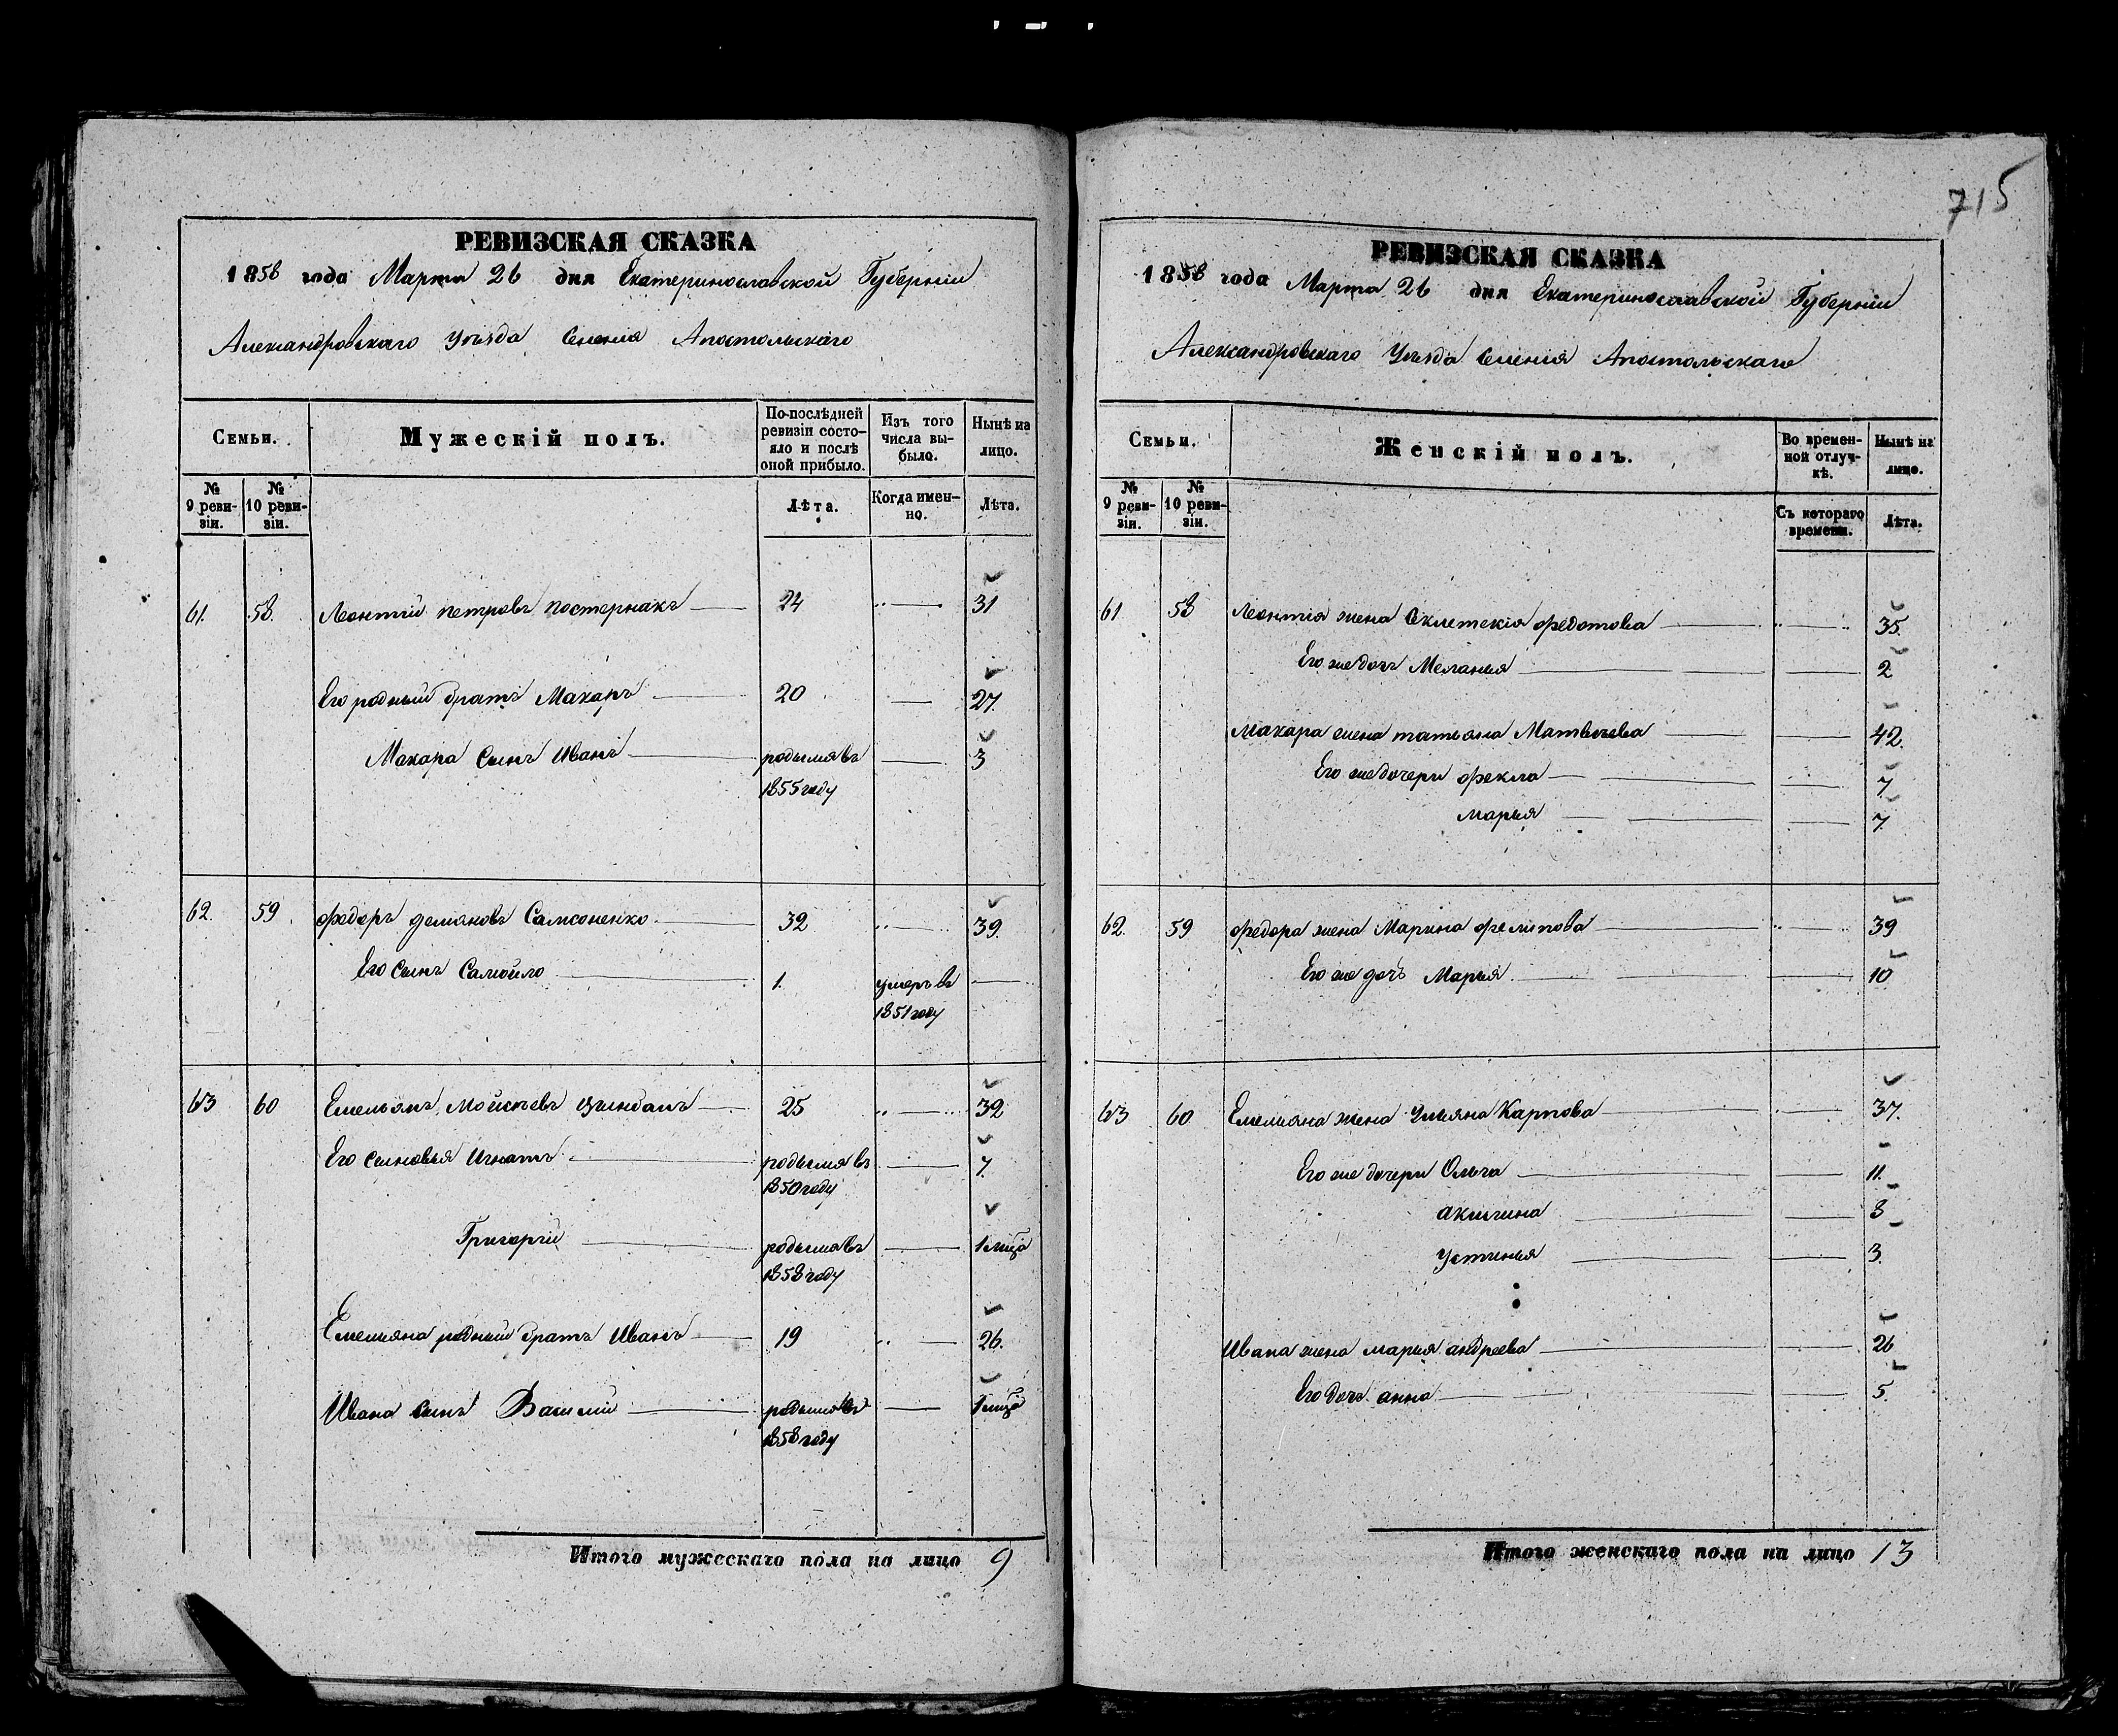 715
РЕВИЗСКАЯ СКАЗКА
1858 года Марта 26 дня Екатеринославской Губерніи
Александровскаго Уѣзда Селенія Апостольскаго
Семьи. Мужескій полъ. По-послѣдней ревизіи состояло и послѣ оной прибыло. Изъ того числа выбыло. Нынѣ на лицо.
№ 9 ревизіи. № 10 ревизіи. Лѣта. Когда именно. Лѣта.
61. 58. Леонтій петровъ постернакъ 24 31
Его родный братъ Макаръ 20 27.
Макара Сынъ Иванъ родился въ 3
1855 году
62. 59. федоръ демяновъ Самсоненко 32 39.
Его Сынъ Самойло 1. умеръ въ
1851 году
63 60 Емельянъ Мойсѣевъ 25 32
Его Сыновья Игнатъ родился въ 7.
1850 году
Григорій родился въ 1 мѣца
1858 году
Емеляна родный братъ Иванъ 19 26.
Ивана сынъ Василій родился въ 1 мѣца
1858 году
Итого мужескаго пола на лицо 9
РЕВИЗСКАЯ СКАЗКА
1858 года Марта 26 дня Екатеринославской Губерніи
Александровскаго Уѣзда Селенія Апостольскаго
Семьи. Женскій полъ. Во временной отлучкѣ. Нынѣ на лицо.
№ 9 ревизіи. № 10 ревизіи. Съ котораго времени. Лѣта.
61 58 Леонтія жена Феклетскія федотова 35.
Его же дочь Меланья 2
Макара жена татьяна Матвѣева 42.
Его же дочери фекла 7.
марья 7.
62. 59 федора жена Марина филипова 39
Его же дочь Марья 10
63 60. Емеляна жена Ульяна Карпова 37.
Его же дочери Ольга 11.
акилина 8
устинья 3.
Ивана жена марья андреева 26
Его дочь анна 5.
Итого женскаго пола на лицо 13